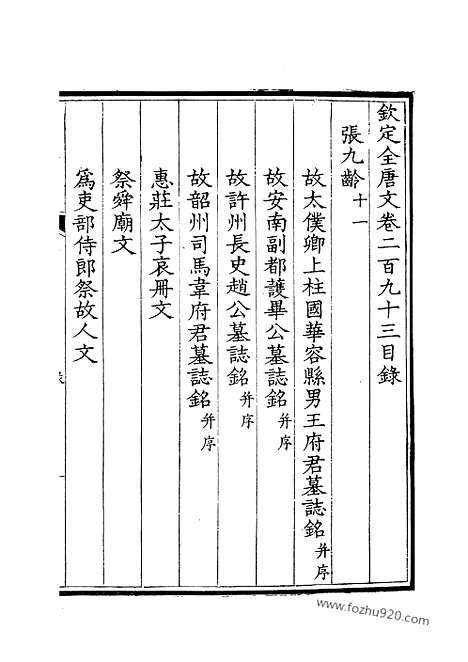 欽定全唐文卷二百九十三目錄
張九齡十一
故太僕卿上柱國華容縣男王府君墓誌銘并序
故安南副都護畢公墓誌銘并序
故許州長史趙公墓誌銘并序
故韶州司馬韋府君墓誌銘并序
惠莊太子哀冊文
祭舜廟文
爲吏部侍郎祭故人文
www.fozhu920.com